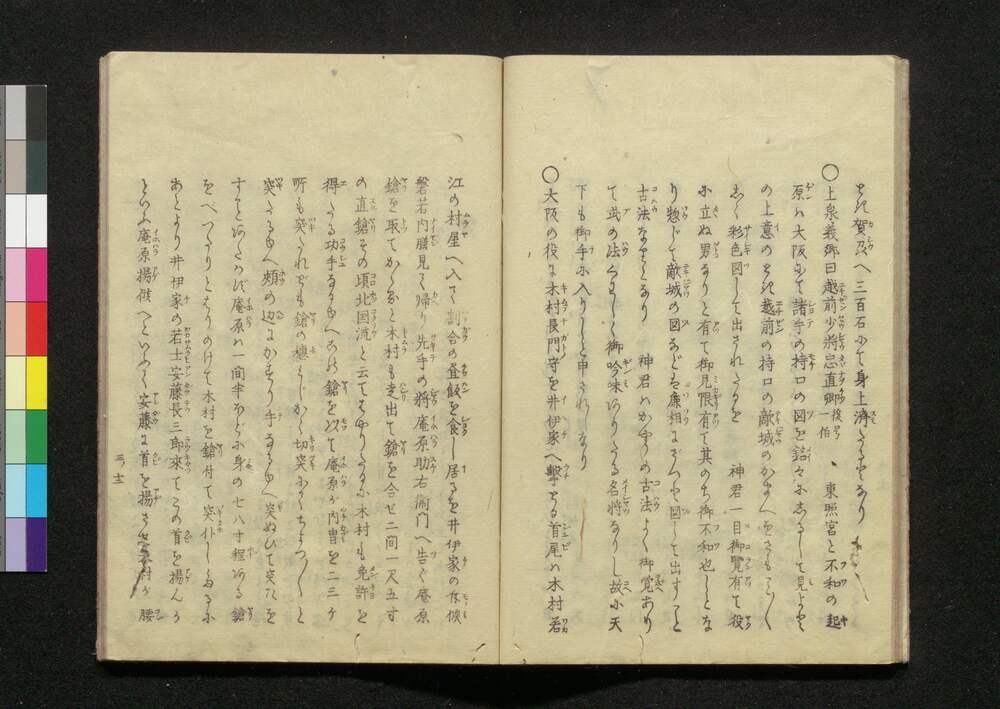 賀及へ三百石にて身上済たるとなり
〇上泉義郷曰越前少将忠直卿後号一伯東照宮と不和の起
原ハ大阪にて諸手の持口の図を銘々にしるして見よと
の上意のとき越前の持口の敵城のかまへをさもこく
しく彩色図して出されたるを 神君一目御覧有て役
に立ぬ男なりと有て御見限有て其のち御不和也しとな
り惣じて敵城の図などを麁相にざつと図して出すこと
古法なるとなり 神君ハかやうの古法よく御覚あり
て武の法くはしく御吟味ありたる名将なりし故に天
下も御手に入りしと申されしなり
〇大阪の役に木村長門守を井伊家へ撃とる首尾ハ木村若
江の村屋へ入て割合の昼飯を食し居るを井伊家の斥候
磐若内膳見て帰り先手の将庵原助右衛門へ告ぐ庵原
鎗を取てかゝると木村も走出て鎗を合せ二間一尺五寸
の直鎗その頃北国流と云てはやりたるに木村も免許を
得たる功手なるゆへ鎗を以て庵原が内冑を二三ヶ
所も突たれども鎗の穂みじかく切突にちよつ〱と
突たるゆへ頬の辺にかすり手なるゆへ突ぬひて突たを
すことあたハず庵原ハ一間半ほどに身の七八寸程ある鎗
をべつたりとはりのけて木村を鎗付て突仆したるに
あとより井伊家の若士安藤長三郎来てこの首を揚んか
といふ庵原揚候へといふて安藤に首を揚させ木村が腰
三ノ十二